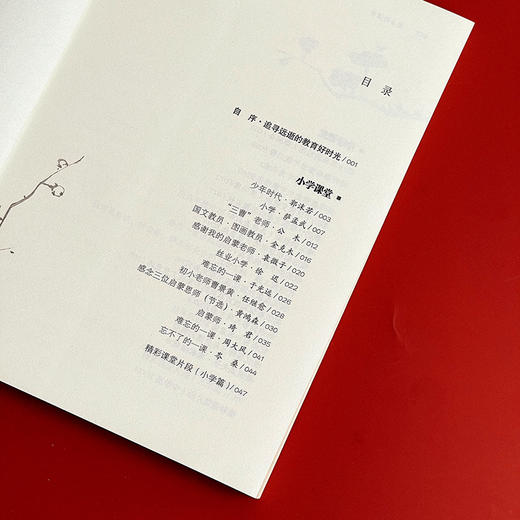 目 录
自 序·追寻远逝的教育好时光/001
小学课堂
少年时代·郭沫若/003
小学·萨孟武/007
“三曹”老师·公 木/012
国文教员·图画教员·金克木/016
感谢我的启蒙老师·袁微子/020
丝业小学·徐 迟/022
难忘的一课·于光远/026
初小老师曹景黄·任继愈/028
感念三位启蒙恩师(节选)·黄鸿森/030
启蒙师·琦 君/035
难忘的一课·周大风/041
忘不了的一课·岑 桑/044
精彩课堂片段(小学篇)/047